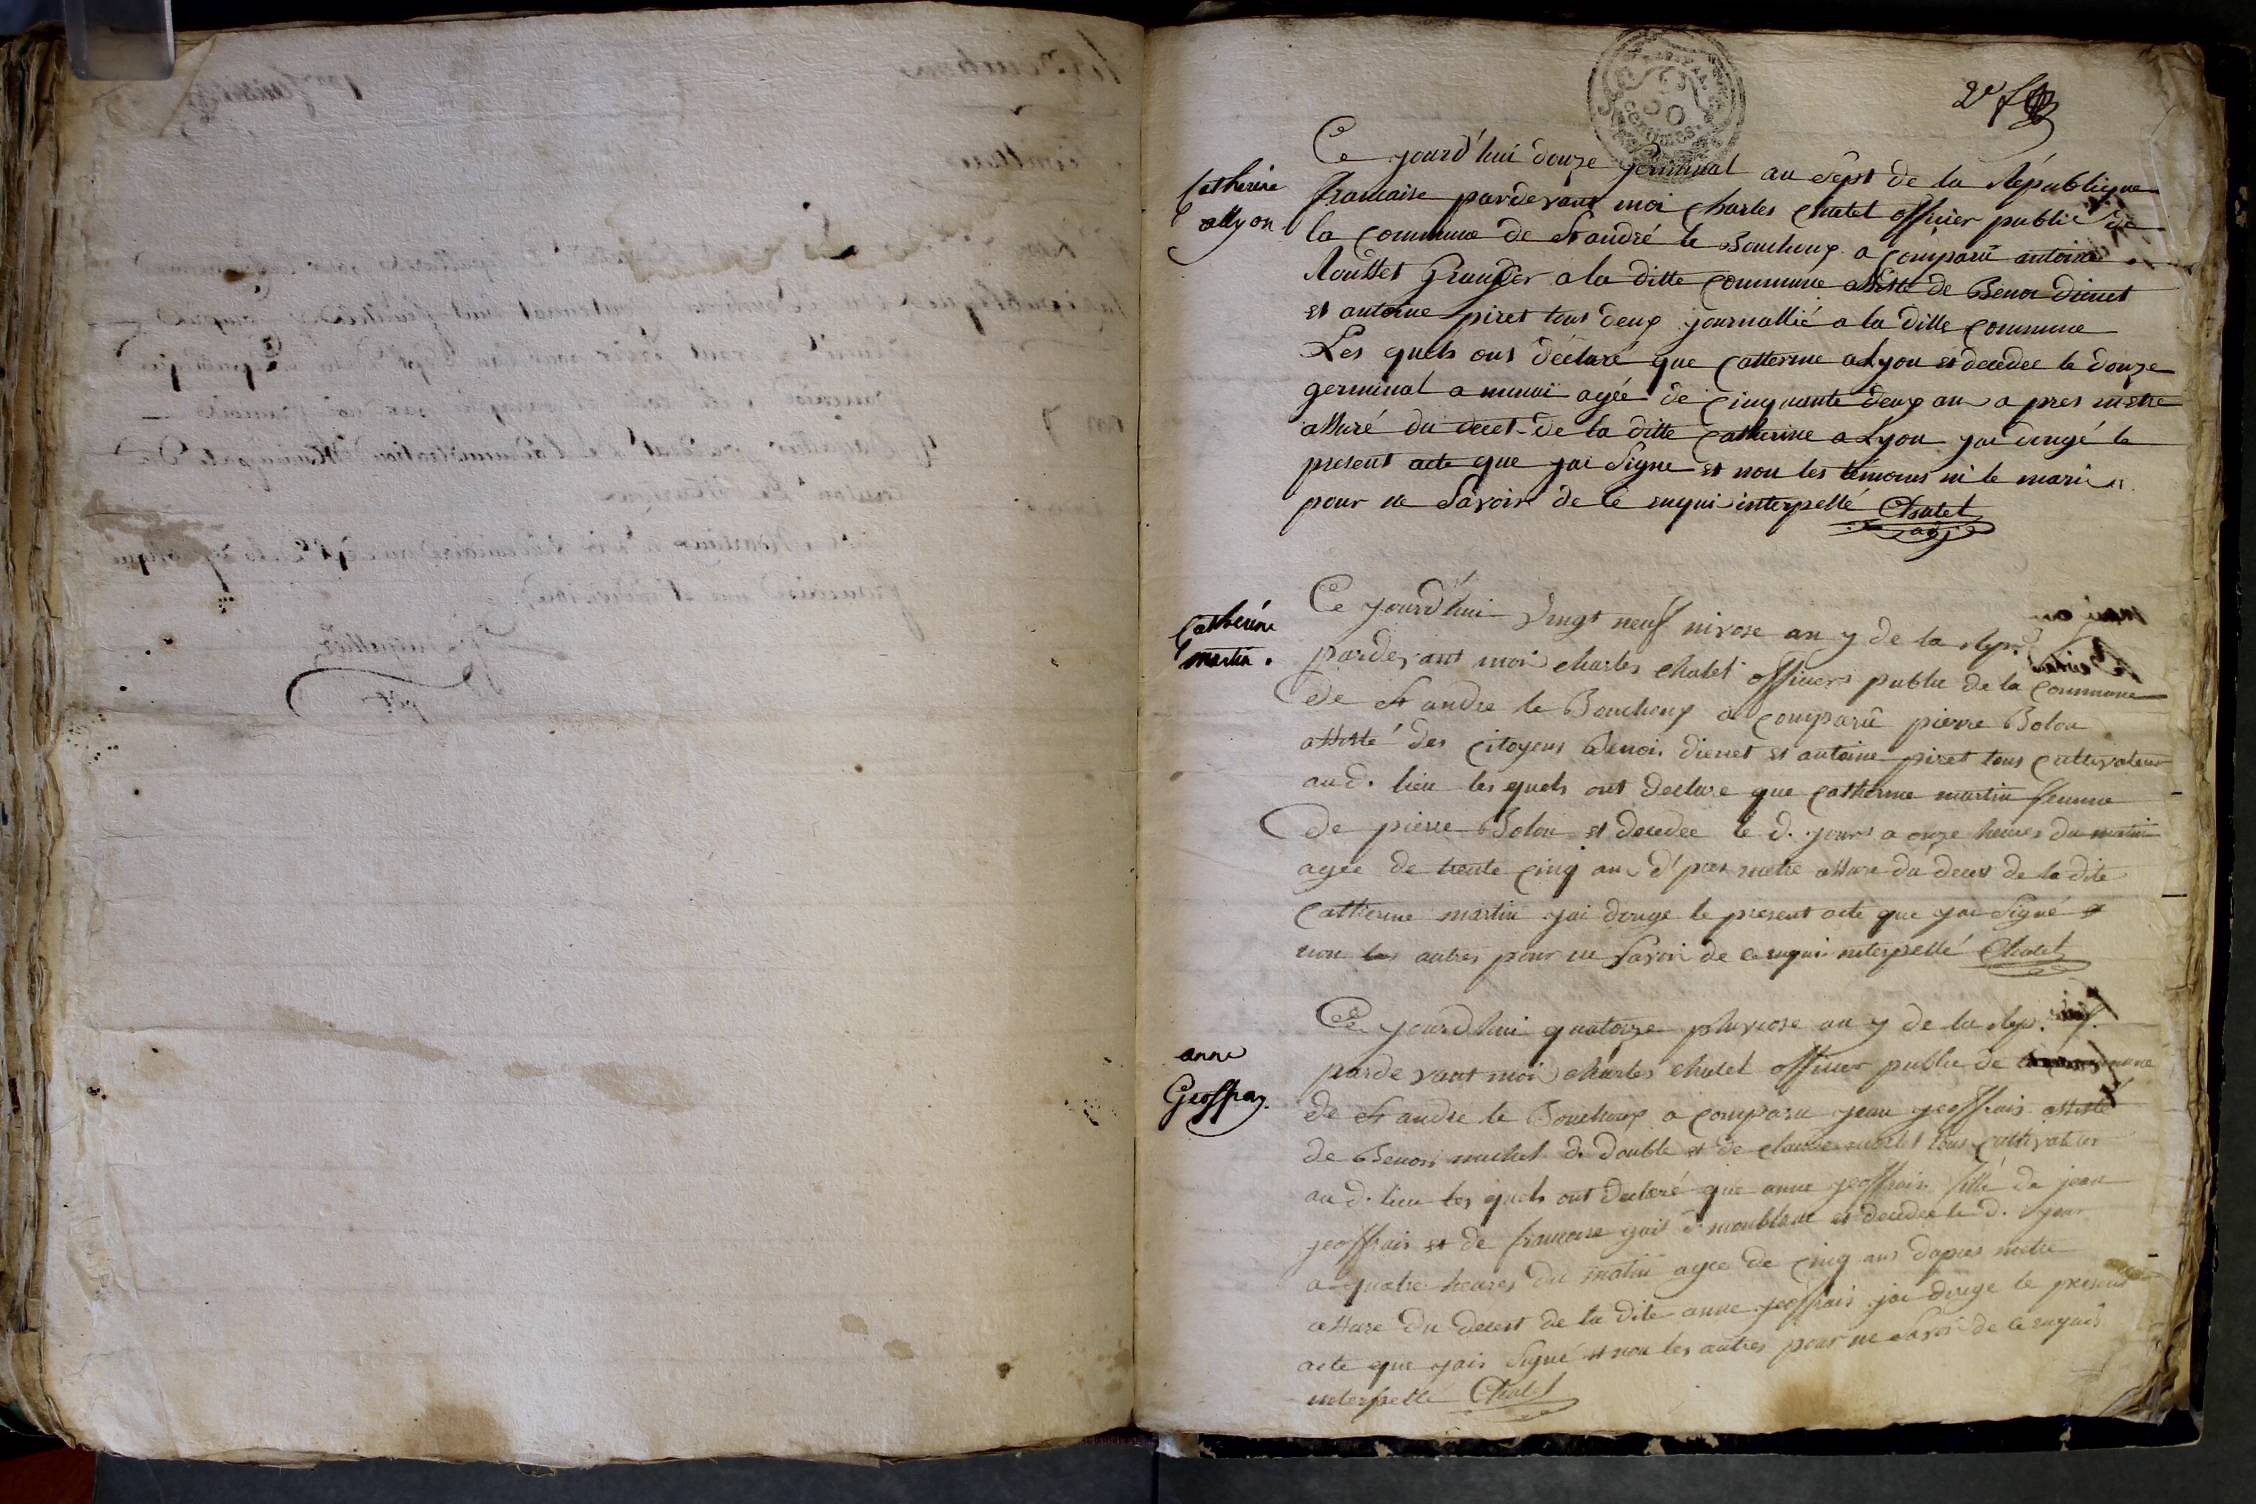 2e f
50
centimes
Catherine
allyon
Ce yourd'hui douze germinal an sept de la République
francaise pardevant moi charles chatet officier public de
la commune de St andré le Bouchoux a comparu antoine
Rousset Granger a la ditte commune assisté de Benoi dienet
et antoine piret tous deux journallié a la ditte commune
Les quels ont déclaré que Catterine alyon et decedee le douze
germinal a minui agée de cinquante deux an a pres mettre
assuré du decet de la ditte Catherine alyon jai dregé le
present acte que jai signe et non les témoins ni le mari
pour ne savoir de ce enqui interpellé Chatet
adj
Catherine
martin
Ce yourd'hui vingt neuf nivose an y de la Rep.
pardevant moi charles chatet officiers public de la commune
de St andre le Bouchoux a comparu pierre Bolon
assisté des citoyens Benoi dienet et antoine piret tous cultivateur
aud. lieu les quels ont declare que catherine martin femme
de pierre Bolon et decedee le d. jour a onze heures du matin
agee de trente cinq an d'pres mettre assure du decet de la dite
Catherine martin jai drege le present acte que jai signé et
non les autres pour ne savoir de ce enqui interpellé Chatet
anne
Geoffray
Ce yourdhui quatorze pluviose an y de la Rep. f.
parde vant moi charles chatet officier public de la commune
de St andre le Bouchoux a comparu jean geoffrais assisté
de Benoi michel d. double et de claude morel tous cultivateur
au d. lieu les quels ont declaré que anne geoffrais fille de jean
geoffrais et de francoise d. monblanc et decedee le d. jour
a quatre heures du matin agee de cinq ans dapres mettre
assure du decest de la dite anne geoffrais jai drege le present
acte que jais signé et non les autres pour ne savoir de ce enqui
interpelle Chatet